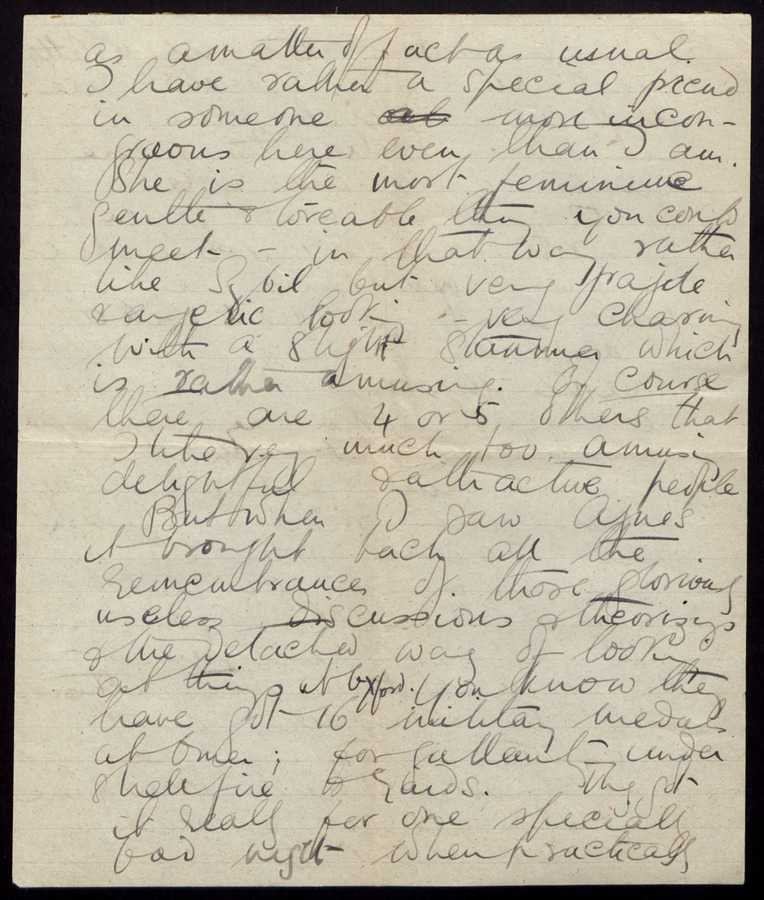 as a matter of fact as usual.
I have rather a special friend
in someone more incon-
gruous here even than I am.
She is the most feminine
gentle & loveable thing you could
meet - in that way rather
like Sybil but very fragile
& angelic looking - very charming
with a slight stammer which
is rather amusing. Of course
there are 4 or 5 others that
I like very much too, amusing
delightful & attractive people
But when I saw Agnes
it brought back all the
remembrances of those gloriously
useless discussions & theorisings
& the detached way of looking
at things at Oxford. You know they
have got 16 military medals
at Omer; for gallantry under
shellfire & raids. They got
it really for one specially
bad night when practically